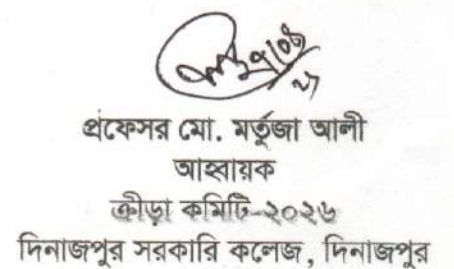 প্রফেসর মো. মর্তুজা আলী
আহ্বায়ক
ক্রীড়া কমিটি-২০২৬
দিনাজপুর সরকারি কলেজ, দিনাজপুর